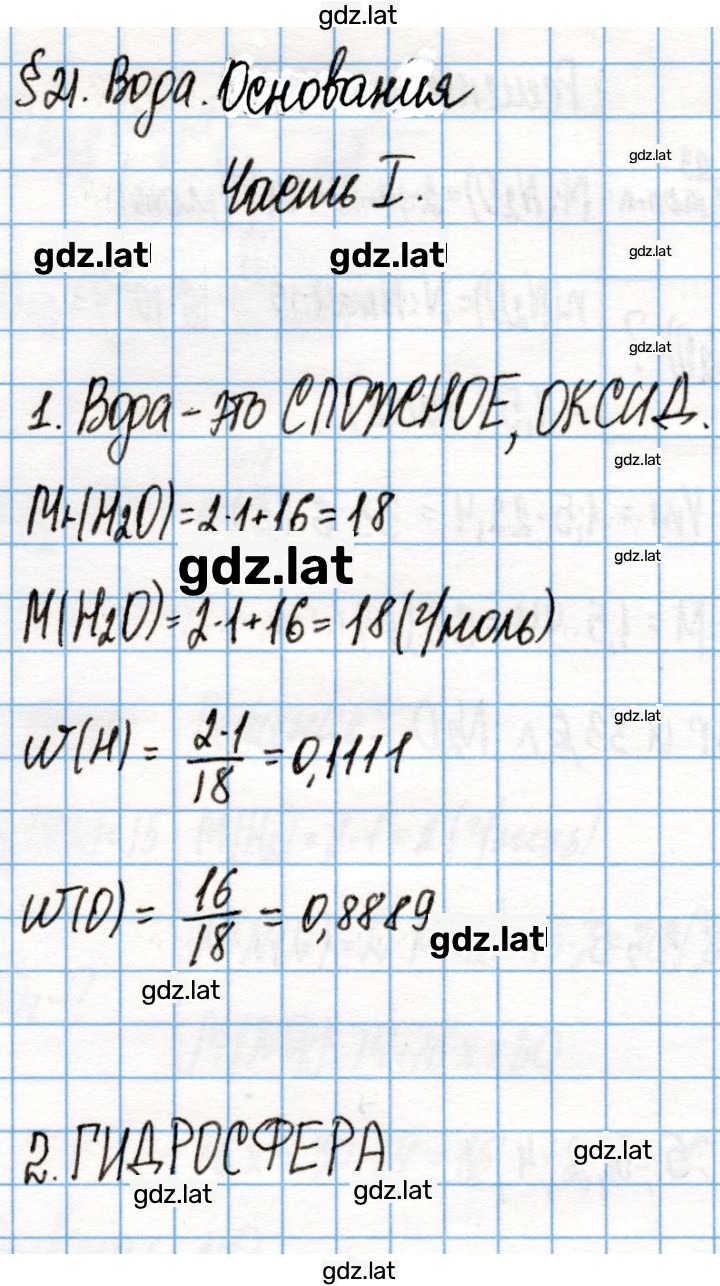 gdz.lat
§ 21. Вода. Основания
Часть I.
gdz.lat
gdz.lat gdz.lat
gdz.lat
gdz.lat
1. Вода - это СЛОЖНОЕ, ОКСИД.
gdz.lat
Mr(H₂O) = 2·1+16 = 18
gdz.lat
gdz.lat
M(H₂O) = 2·1+16 = 18 (г/моль)
gdz.lat
W(H) = 2·1/18 = 0,1111
W(O) = 16/18 = 0,8889
gdz.lat
gdz.lat
2. ГИДРОСФЕРА
gdz.lat
gdz.lat gdz.lat
gdz.lat